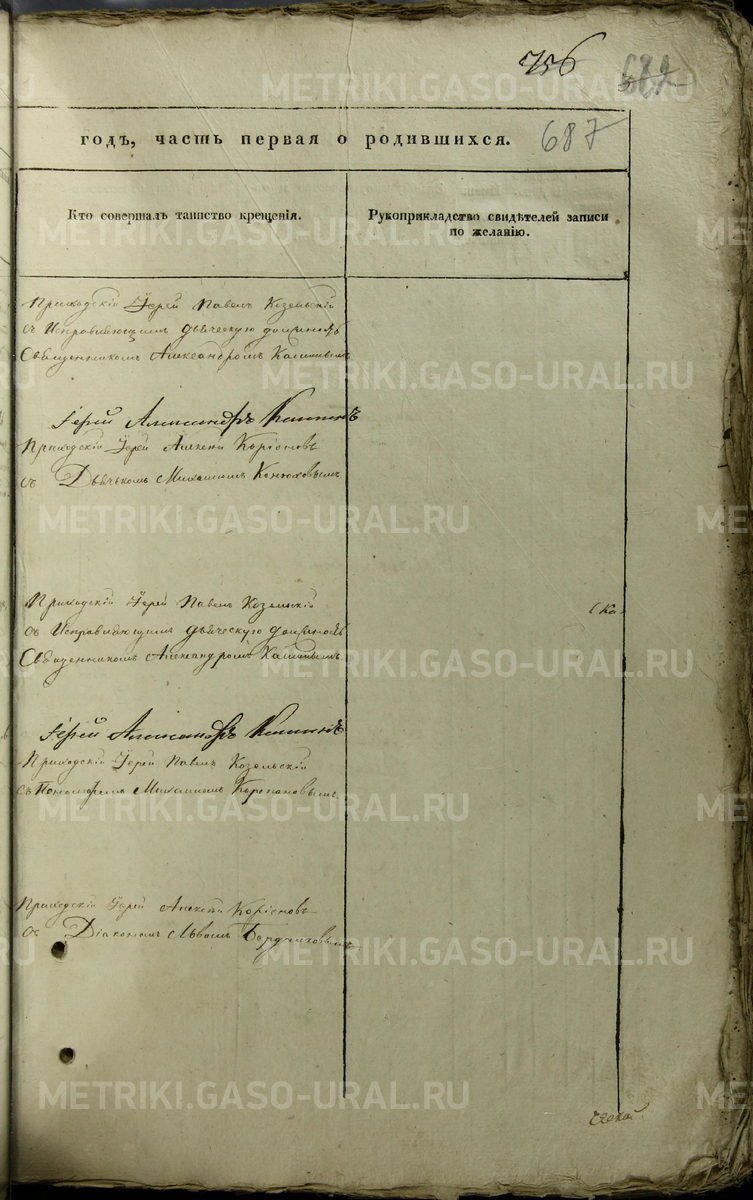 756
687
годъ, часть первая о родившихся.
Кто совершалъ таинство крещенія.
Рукоприкладство свидѣтелей записи
по желанію.
Приходскій Іерей Павелъ Козельскій
съ Исправляющимъ дьяческую должность
Священникомъ Александромъ
Іерей Александръ
Приходскій Іерей Алексѣй
съ Дьячькомъ Михаиломъ Конюховымъ
Приходскій Іерей Павелъ Козельскій
съ Исправляющимъ дьяческую должность
Священникомъ Александромъ
Іерей Александръ
Приходскій Іерей Павелъ Козельскій
съ Пономаремъ Михаиломъ Корепановымъ
Приходскій Іерей Алексѣй
съ Діакономъ Львомъ
METRIKI.GASO-URAL.RU
METRIKI.GASO-URAL.RU
METRIKI.GASO-URAL.RU
METRIKI.GASO-URAL.RU
METRIKI.GASO-URAL.RU
METRIKI.GASO-URAL.RU
METRIKI.GASO-URAL.RU
METRIKI.GASO-URAL.RU